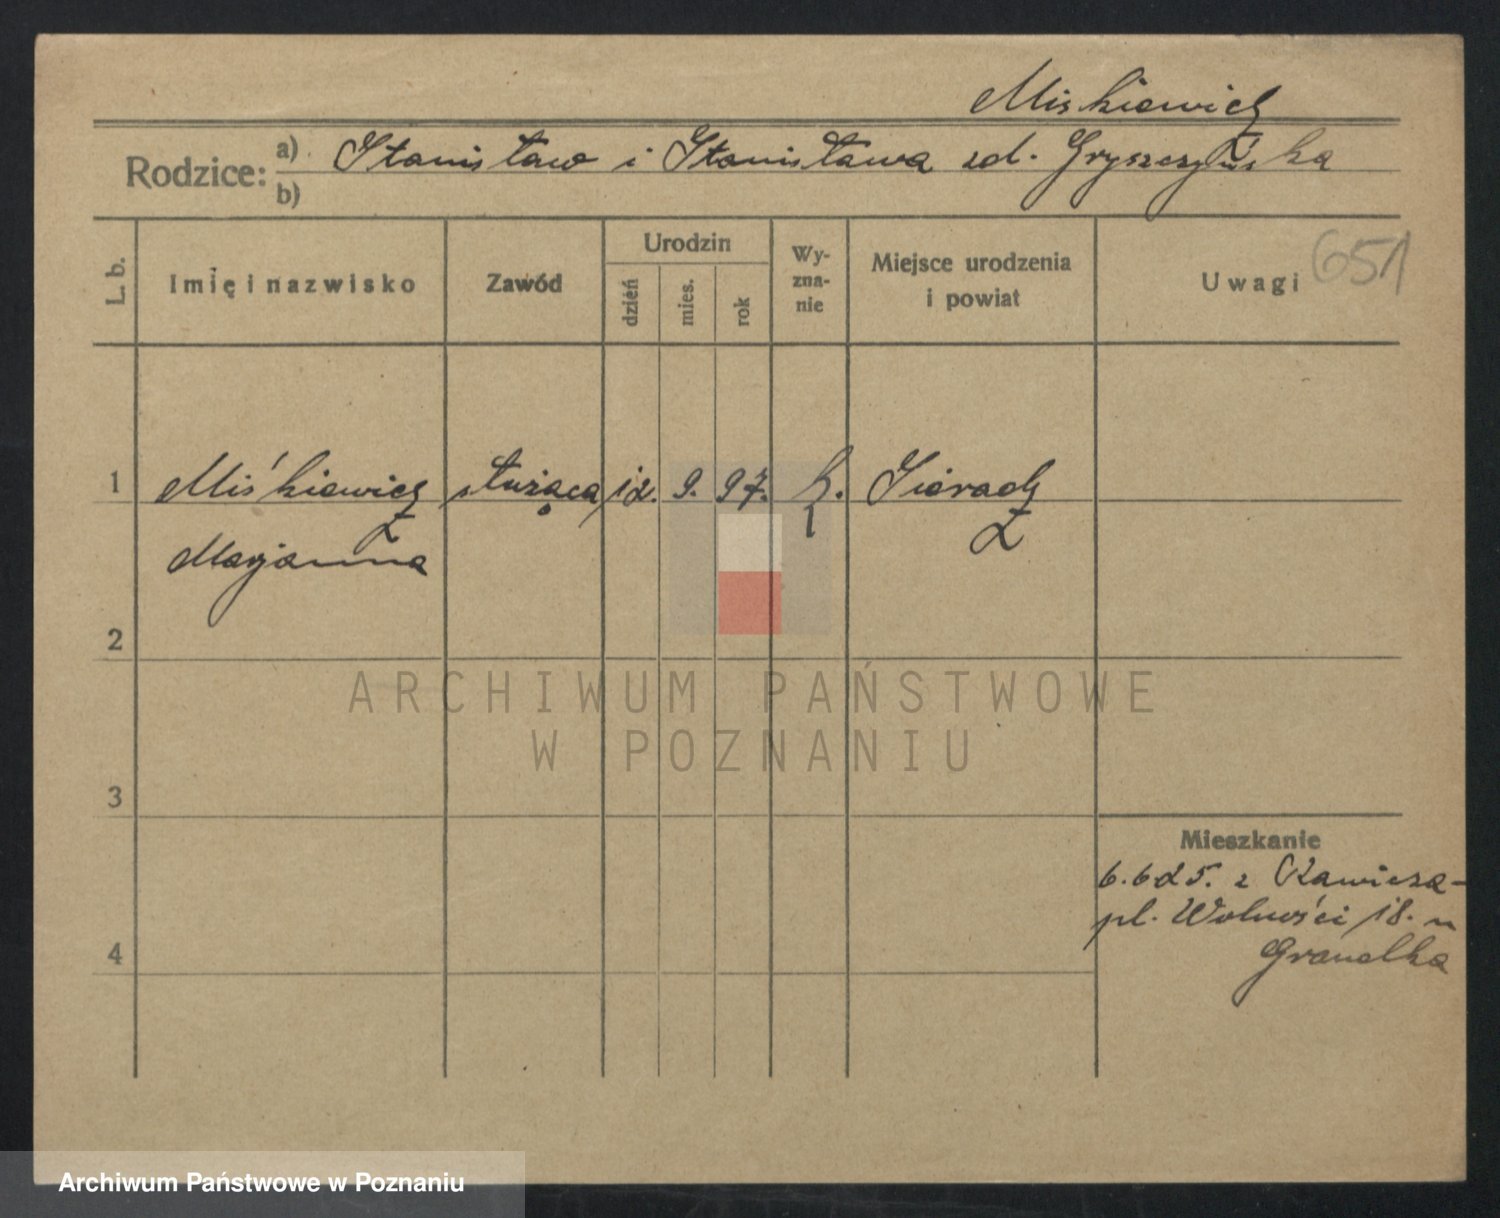 Miśkiewicz
Rodzice: a) Stanisław i Stanisława zd. Gryszczyńska
b)
L. b.
Imię i nazwisko
Zawód
Urodzin
dzień
mies.
rok
Wy-
zna-
nie
Miejsce urodzenia
i powiat
Uwagi
651
1 Miśkiewicz służąca 12. 9. 97. k. Sieradz
Marjanna
2
3
4
ARCHIWUM PAŃSTWOWE
W POZNANIU
Mieszkanie
6.6 25. z Rawicza-
pl. Wolności 18. u
Archiwum Państwowe w Poznaniu